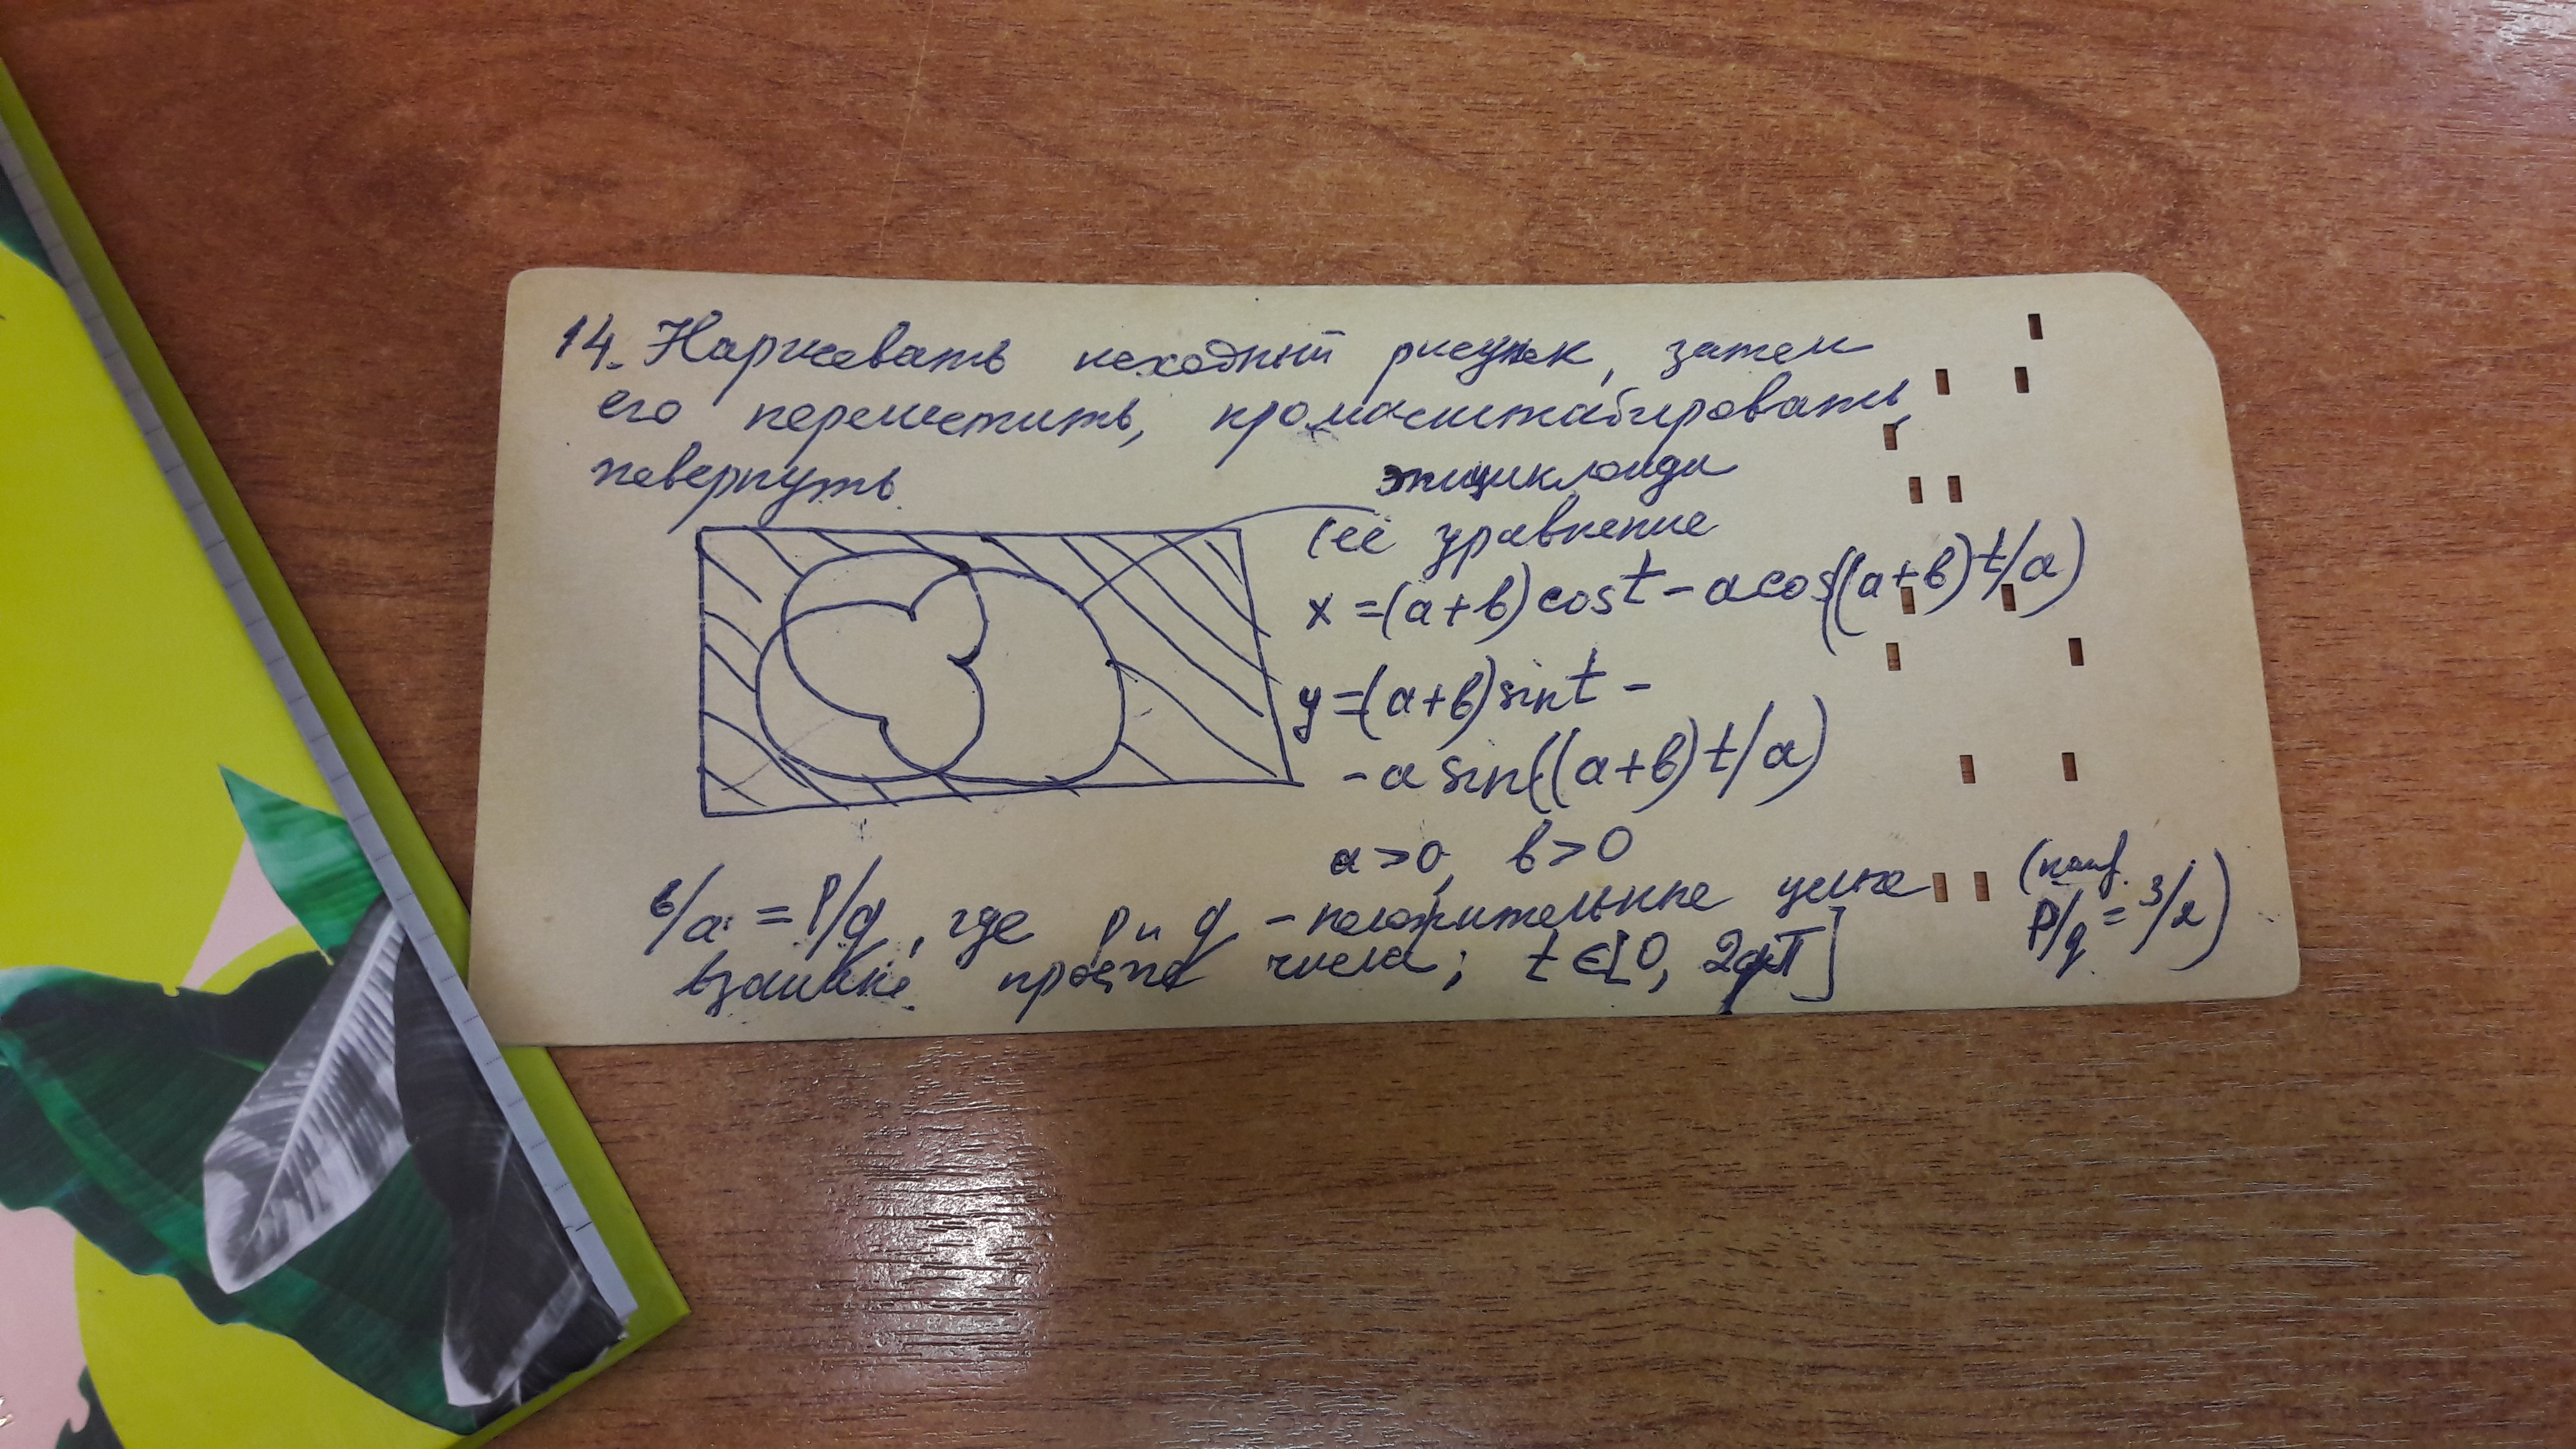 14. Нарисовать исходный рисунок, затем
его переместить, промасштабировать,
повернуть.
эпициклоиди
(её уравнение
x = (a+b)cost - a cos((a+b)t/a)
y = (a+b)sint -
- a sin((a+b)t/a)
a > 0, b > 0
b/a = p/q, где p и q - положительные целые
(напр.
p/q = 3/2)
взаимно простые числа; t ∈ [0, 2qπ]